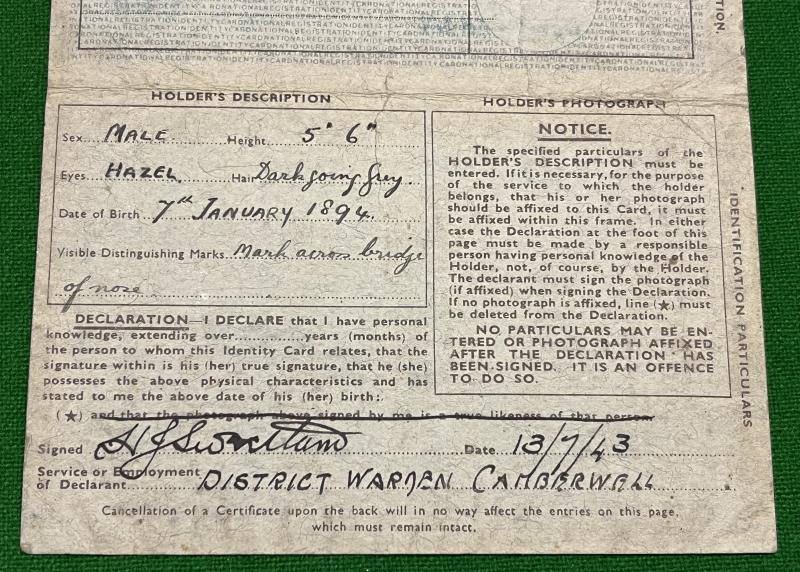 NATIONALREGISTRATIONIDENTITYCARDNATIONALREGISTRATIONIDENTITYCARDNATIONALREGISTRATION
HOLDER'S DESCRIPTION
Sex MALE Height 5' 6"
Eyes HAZEL Hair Dark going Grey
Date of Birth 7th JANUARY 1894
Visible Distinguishing Marks Mark across bridge
of nose
DECLARATION—I DECLARE that I have personal
knowledge, extending over..............years (months) of
the person to whom this Identity Card relates, that the
signature within is his (her) true signature, that he (she)
possesses the above physical characteristics and has
stated to me the above date of his (her) birth:.
HOLDER'S PHOTOGRAPH
NOTICE.
The specified particulars of the
HOLDER'S DESCRIPTION must be
entered. If it is necessary, for the purpose
of the service to which the holder
belongs, that his or her photograph
should be affixed to this Card, it must
be affixed within this frame. In either
case the Declaration at the foot of this
page must be made by a responsible
person having personal knowledge of the
Holder, not, of course, by the Holder.
The declarant must sign the photograph
(if affixed) when signing the Declaration.
If no photograph is affixed, line (★) must
be deleted from the Declaration.
NO PARTICULARS MAY BE EN-
TERED OR PHOTOGRAPH AFFIXED
AFTER THE DECLARATION HAS
BEEN SIGNED. IT IS AN OFFENCE
TO DO SO.
IDENTIFICATION PARTICULARS
(★) and that the photograph above signed by me is a true likeness of that person.
Signed Date 13/7/43
Service or Employment
of Declarant DISTRICT WARDEN CAMBERWELL
Cancellation of a Certificate upon the back will in no way affect the entries on this page,
which must remain intact.